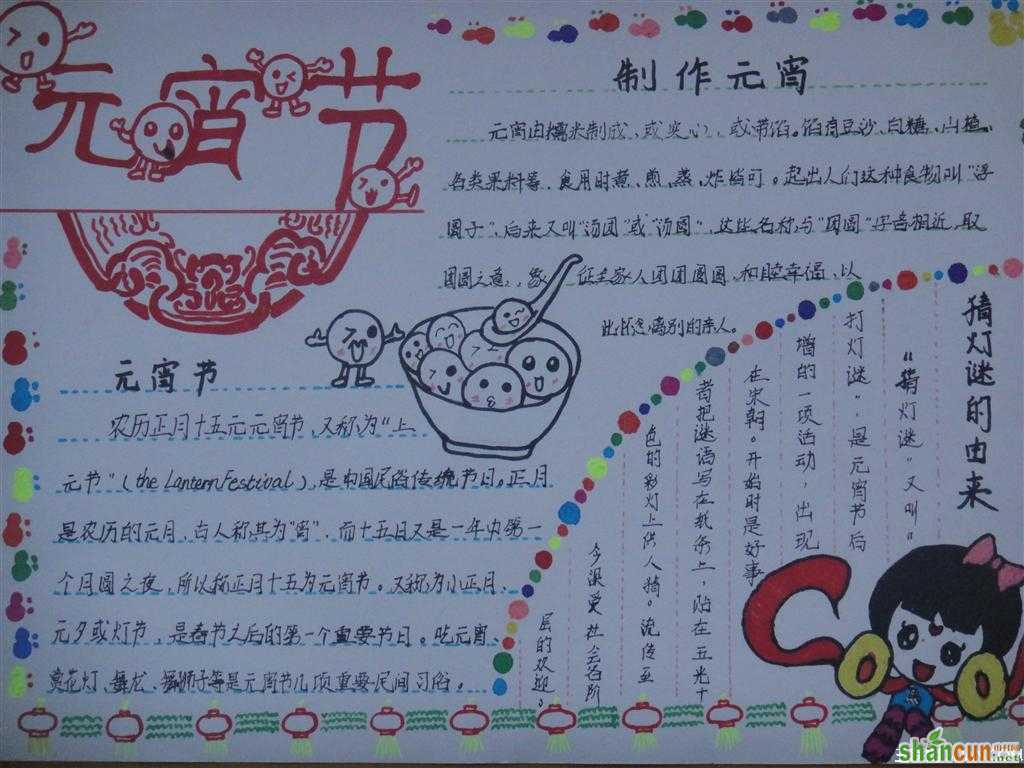 元宵节
制作元宵
元宵由糯米制成,或实心,或带馅。馅有豆沙、白糖、山楂、
各类果料等,食用时煮、煎、蒸、炸皆可。起出人们这种食物叫“浮
圆子”,后来又叫“汤团”或“汤圆”,这些名称与“团圆”字音相近,取
团圆之意,象征全家人团团圆圆,和睦幸福,以
此怀念离别的亲人。
元宵节
农历正月十五元元宵节,又称为“上
元节”(the Lantern Festival),是中国民俗传统节日。正月
是农历的元月,古人称其为“宵”,而十五日又是一年中第一
个月圆之夜,所以称正月十五为元宵节。又称为小正月、
元夕或灯节,是春节之后的第一个重要节日。吃元宵、
赏花灯、舞龙、舞狮子等是元宵节几项重要民间习俗。
猜灯谜的由来
“猜灯谜”又叫“
打灯谜”,是元宵节后
增的一项活动,出现
在宋朝。开始时是好事
者把谜语写在纸条上,贴在五光十
色的彩灯上供人猜。流传至
今深受社会各阶
层的欢迎。
shancun
山村网
.net